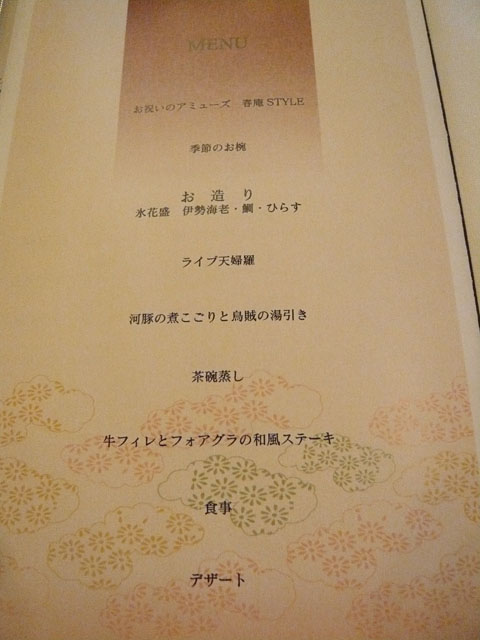 MENU
お祝いのアミューズ　春庵 STYLE
季節のお椀
お　造　り
氷花盛　伊勢海老・鯛・ひらす
ライブ天婦羅
河豚の煮こごりと烏賊の湯引き
茶碗蒸し
牛フィレとフォアグラの和風ステーキ
食事
デザート